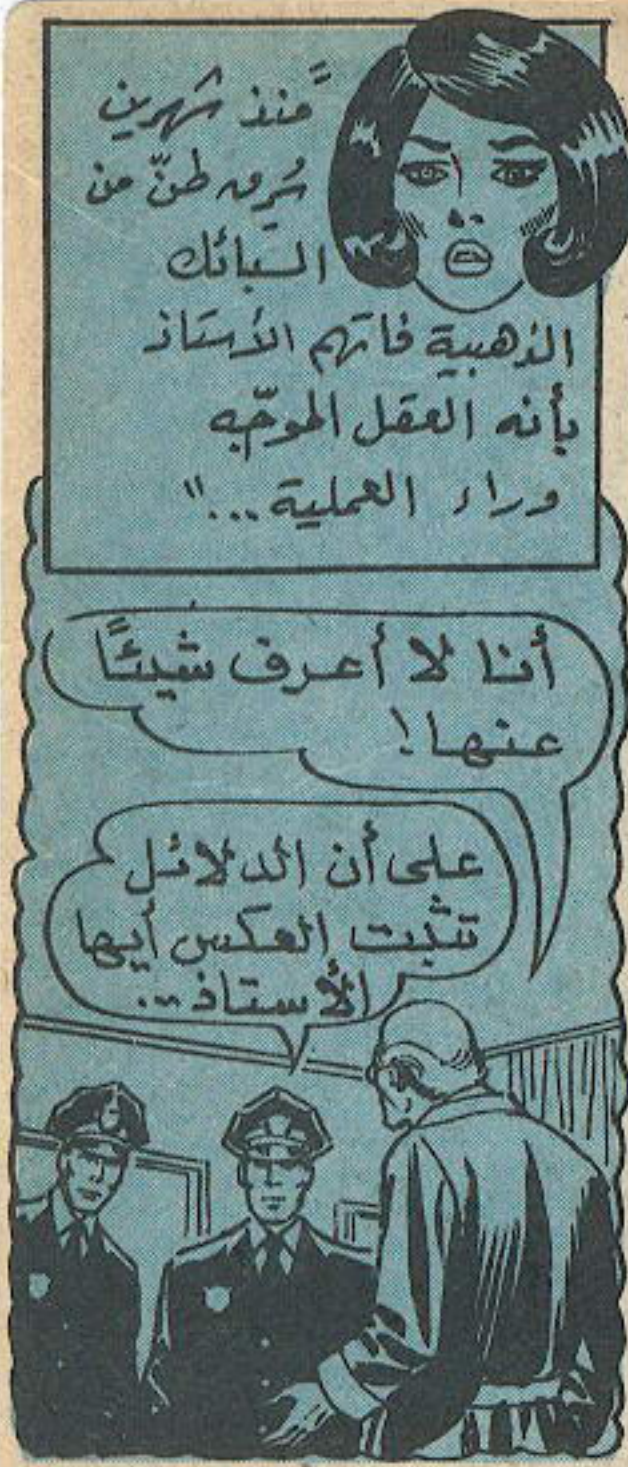 "منذ شهرين
سُرق طنّ من
السبائك
الذهبية فاتهم الأستاذ
بأنه العقل الموجّه
وراء العملية..."
أنا لا أعرف شيئًا
عنها!
على أن الدلائل
تثبت العكس أيها
الأستاذ...